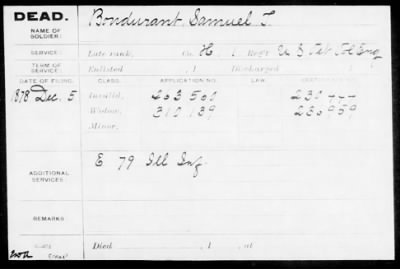 DEAD.
NAME OF SOLDIER:
Bondurant Samuel T.
SERVICE:
Late rank, Co. H, 1 Reg't U S Vet Vol Eng
TERM OF SERVICE:
Enlisted , 1 Discharged
DATE OF FILING. CLASS. APPLICATION NO. LAW. CERTIFICATE NO.
1878 Dec. 5 Invalid, 203 500
Widow, 310,139 230959
Minor,
ADDITIONAL SERVICES:
E 79 Ill Inf
REMARKS:
Died , 1 , at